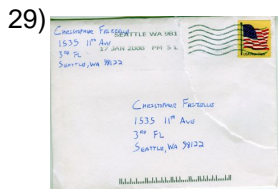 29)
CHRISTOPHER FRIZZELLE
1535 11TH AVE
3RD FL
SEATTLE, WA 98122
SEATTLE WA 981
17 JAN 2008 PM 5 L
CHRISTOPHER FRIZZELLE
1535 11TH AVE
3RD FL
SEATTLE, WA 98122